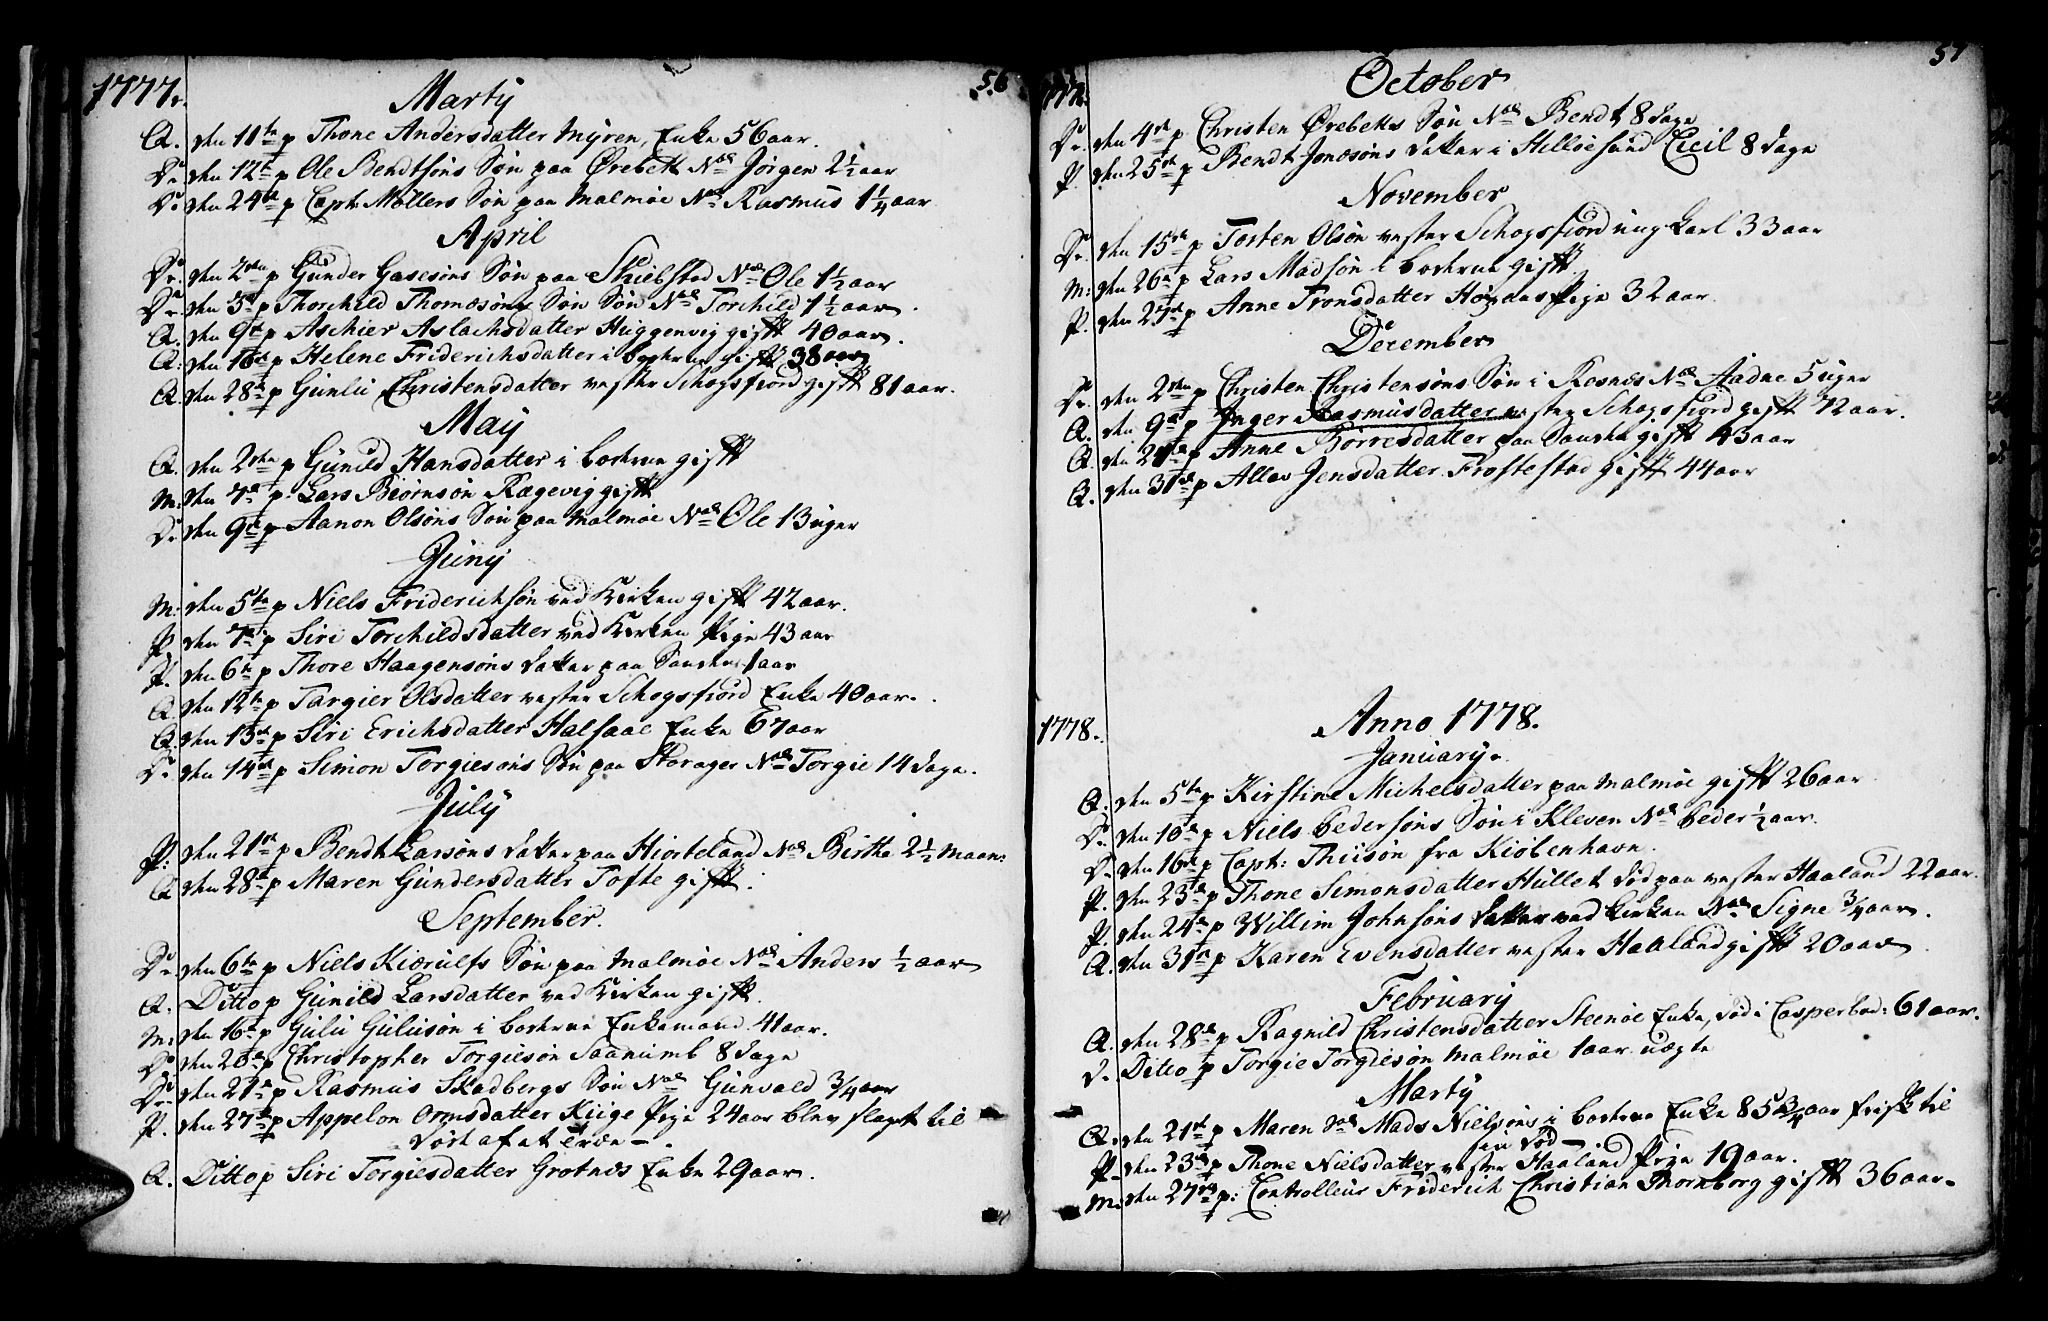 1777. 56
Martÿ
Q. den 11te p Thone Andersdatter Myren, Enke 56 aar.
Dr. den 12te p Ole Bendtsöns Sön paa Örebek Nal Jörgen 2½ aar
Dr. den 24de p Capt. Möllers Sön paa Malmöe Nal Rasmus 1¼ aar
April
Dr. den 2den p Gunder Gasesöns Sön paa Skielsstad Nal Ole 1½ aar
Dr. den 3die p Thorchild Thomæsöns Sön Sön Nal Torchild 1½ aar.
Q. den 9de p Aschier Aslachsdatter Huggenvig gift 40 aar.
Q. den 16de p Helene Friderichsdatter i boeherue gift 38 aar
Q. den 28de p Gunlu Christensdatter vester Schogsfiord gift 81 aar.
May
Q. den 2den p Gunild Hansdatter i boeherue gift
M: den 7de p Lars Biörnsön Rægevig gift
Dr. den 9de p Aanon Olsöns Sön paa Malmöe Nal Ole 13 uger
Junÿ
M: den 5te p Niels Friderichsön ved Kirken gift 42 aar.
P. den 7de p Siri Torchildsdatter ved Kirken Pige 43 aar
P. den 6te p Thore Haagensöns Datter paa Sanskn 1 aar
Q. den 12te p Targier Olsdatter vester Schogsfiord Enke 40 aar.
Q. den 13de p Siri Erichsdatter Halsaae Enke 67 aar
Dr. den 14de p Simon Torgiesöns Sön paa Storager Nal Torgie 14 dage.
Julÿ
P. den 21de p Bendt Larsöns Datter paa Hiorteland Nal Birthe 2½ maan:
Q den 28de p Maren Gundersdatter Tofte gift.
September.
Dr. den 6te p Niels Kiørulfs Sön paa Malmöe Nal Anders ½ aar
Q. Ditto p Gunild Larsdatter ved Kirken gift.
M: den 16de p Gulu Gulusön i boeherue Enkemand 41 aar.
Dr den 20de p Christopher Torgiesön Saanumb 8 dage
Dr. den 21de p Rasmus Skadbergs Sön Nal Gunvald ¾ aar
P. den 27de p Appelon Ormsdatter Kiige Pige 24 aar blev slaget til
död af et træe.
Q. Ditto p Siri Torgiesdatter Grotnæs Enke 29 aar.
177 57
October
Dr. den 4de p. Christen Örebeks Sön Nal Bendt 8 dage
P. den 25de p Bendt Jonæsöns Datter i Hellöesund Cecil 8 dage
November
Dr. den 15de p Torsten Olsön vester Schogsfiord ung karl 33 aar
M: den 26de p Lars Madsön i boeherue gift
P. den 27de p Anne Tronsdatter Höyaas Pige 32 aar.
December
Dr. den 2den p Christen Christensöns Sön i Resnæs Nal Aadne 5 uger
Q. den 9de p Inger Rasmusdatter vester Schogsfiord gift 72 aar.
Q. den 21de p Anne Börresdatter paa Sanskn gift 43 aar
Q. den 31de p Allev Jensdatter Frostestad gift 44 aar
1778. Anno 1778.
Januarÿ.
Q. den 5te p Kirstine Michelsdatter paa Malmöe gift 26 aar
Dr. den 10de p Niels Pedersöns Sön i Kleven Nal Peder ½ aar.
D. den 16de p Capt: Thiisön fra Kiöbenhavn.
P. den 23de p Thone Simonsdatter Hullet död paa vester Haaland 22 aar.
P. den 24de p Willim Johnsöns Datter ved kirken Nal Signe ¾ aar.
Q. den 31de p Karen Evensdatter vester Haaland gift 20 aar
Februarÿ
Q. den 28de p Ragnild Christensdatter Steenöe Enke, död i Casperbod: 61 aar.
D. Ditto p Torgie Torgiesön Malmöe 1 aar uægte
Martÿ
Q. den 21de p Maren Nal Mads Nielsöns i boeherue Enke 85¾ aar frisk til
sin död
P. den 23de p Thone Nielsdatter vester Haaland Pige 19 aar.
M: den 27de p: Controlleur Friderich Christian Thornborg gift 36 aar.